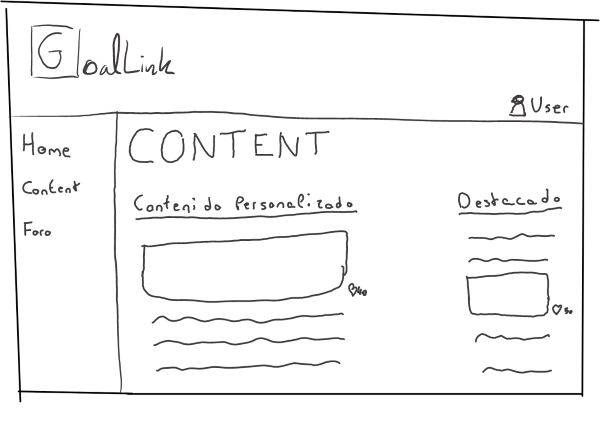 GoalLink
User
Home
Content
Foro
CONTENT
Contenido Personalizado
40
Destacado
30